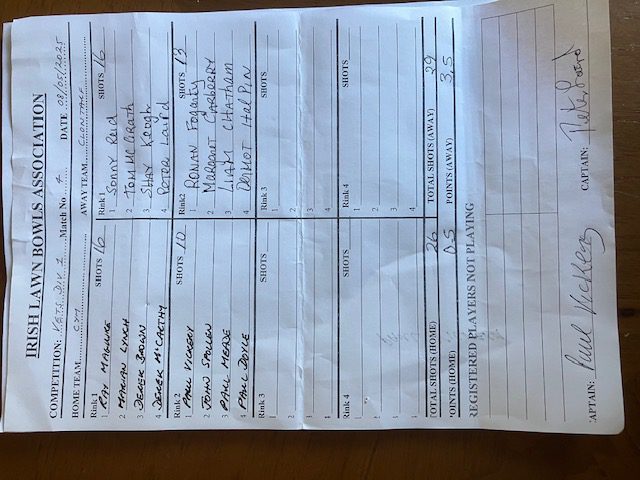 IRISH LAWN BOWLS ASSOCIATION
COMPETITION: VETS DIV 1 Match No 4 DATE 08/05/2025
HOME TEAM CYM AWAY TEAM CLONTARF
Rink 1 SHOTS 16 Rink 1 SHOTS 16
1 RAY MAGUIRE 1 SONNY Reid
2 MARIAN LYNCH 2 TOM McGRATH
3 DEREK BROWN 3 SHAY Keogh
4 DEREK McCARTHY 4 PETER Laird
Rink 2 SHOTS 10 Rink2 SHOTS 13
1 PAUL VICKERY 1 RONAN Fogarty
2 JOHN SPOLLEN 2 Margaret CARBERRY
3 PAUL MEADE 3 LIAM CHATHAM
4 PAUL DOYLE 4 DERMOT HALPIN
Rink 3 SHOTS Rink 3 SHOTS
1 1
2 2
3 3
4 4
Rink 4 SHOTS Rink 4 SHOTS
1 1
2 2
3 3
4 4
OTAL SHOTS (HOME) 26 TOTAL SHOTS (AWAY) 29
OINTS (HOME) 0.5 POINTS (AWAY) 3.5
REGISTERED PLAYERS NOT PLAYING
APTAIN: Paul Vickery CAPTAIN: Peter Laird